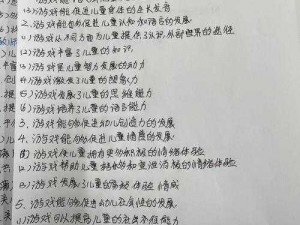 (3)游戏能促进儿童身体的生长发育
2.游戏能够促进儿童认知和语言的发展
(1)游戏从不同方面为儿童提供了认识外部世界的途径
(2)游戏丰富了儿童的知识
(3)游戏是儿童智力发展的动力
(4)游戏激发了儿童的想象力
(5)游戏发展了儿童的思维能力
(6)游戏培养了儿童的语言能力
3.游戏能够促进幼儿创造力的发展
4.游戏能够促进儿童情感的发展
(1)游戏使儿童拥有更多积极的情绪体验
(2)游戏帮助儿童转移和变通消极的情绪体验
(3)游戏发展了儿童的高级体验情感
5.游戏能够促进幼儿社会性的发展
(1)游戏可以提高儿童的社会交往能力